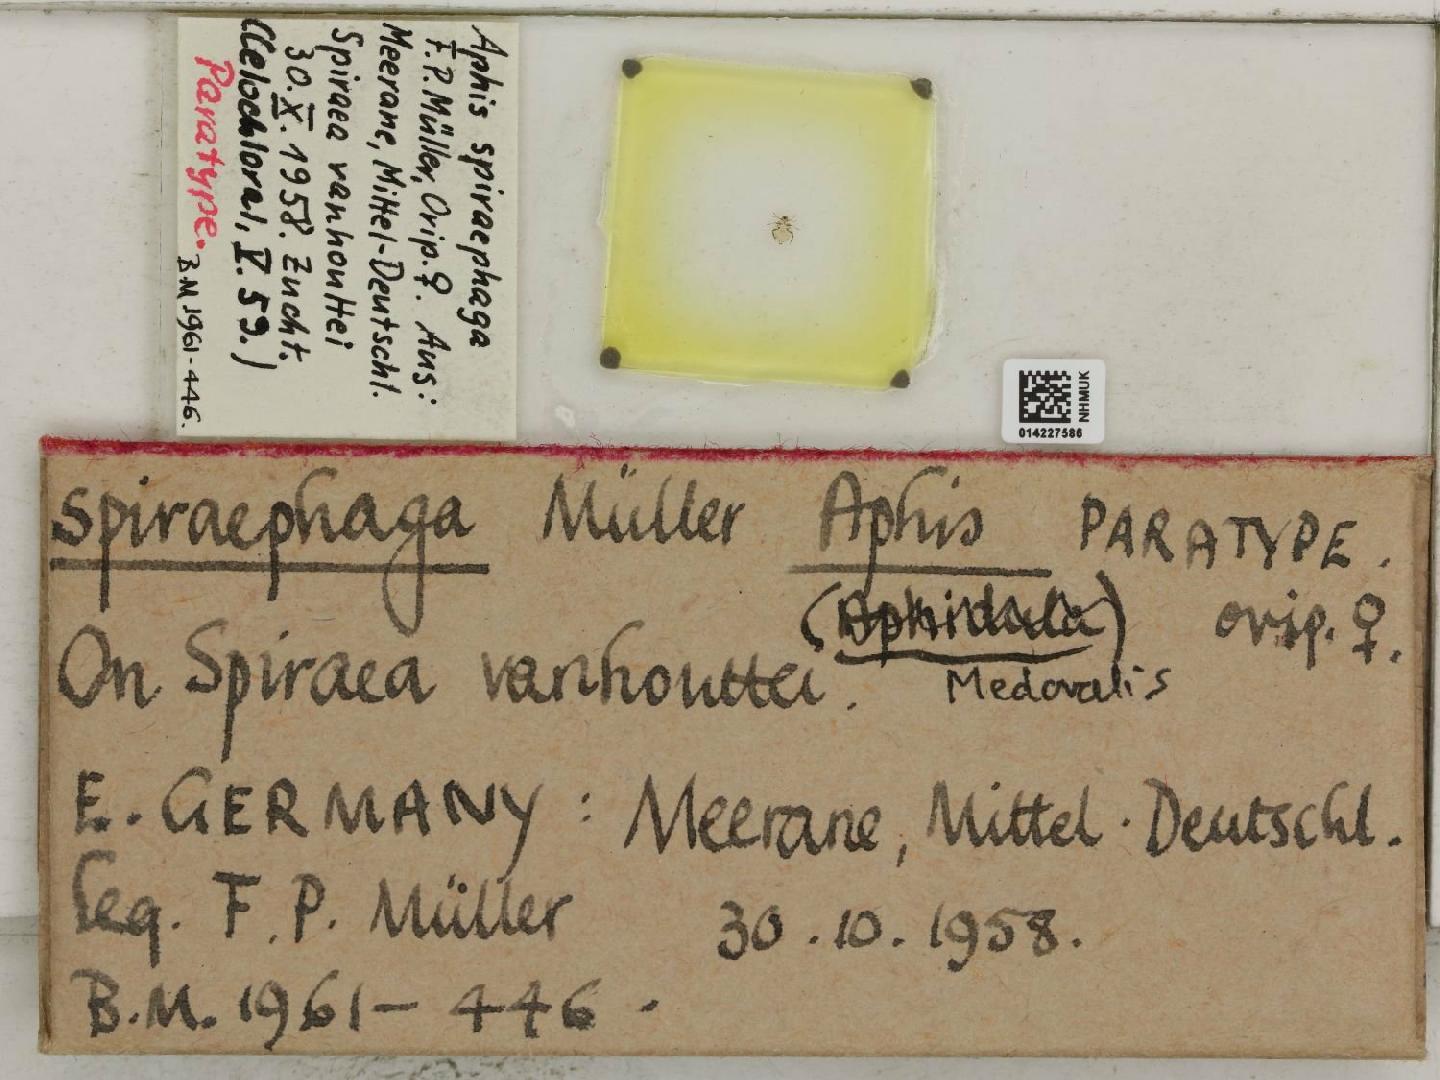 Aphis spiraephaga
F.P. Müller, Ovip. ♀. Aus:
Meerane, Mittel-Deutschl.
Spiraea vanhouttei
30.X.1958. Zucht.
(Celochloral, V.59.)
Paratype.
B.M 1961-446.
NHMUK
014227586
spiraephaga Müller Aphis PARATYPE.
(Aphidula) ovip. ♀.
On Spiraea vanhouttei. Medoralis
E. GERMANY: Meerane, Mittel-Deutschl.
leg. F.P. Müller 30.10.1958.
B.M. 1961-446.